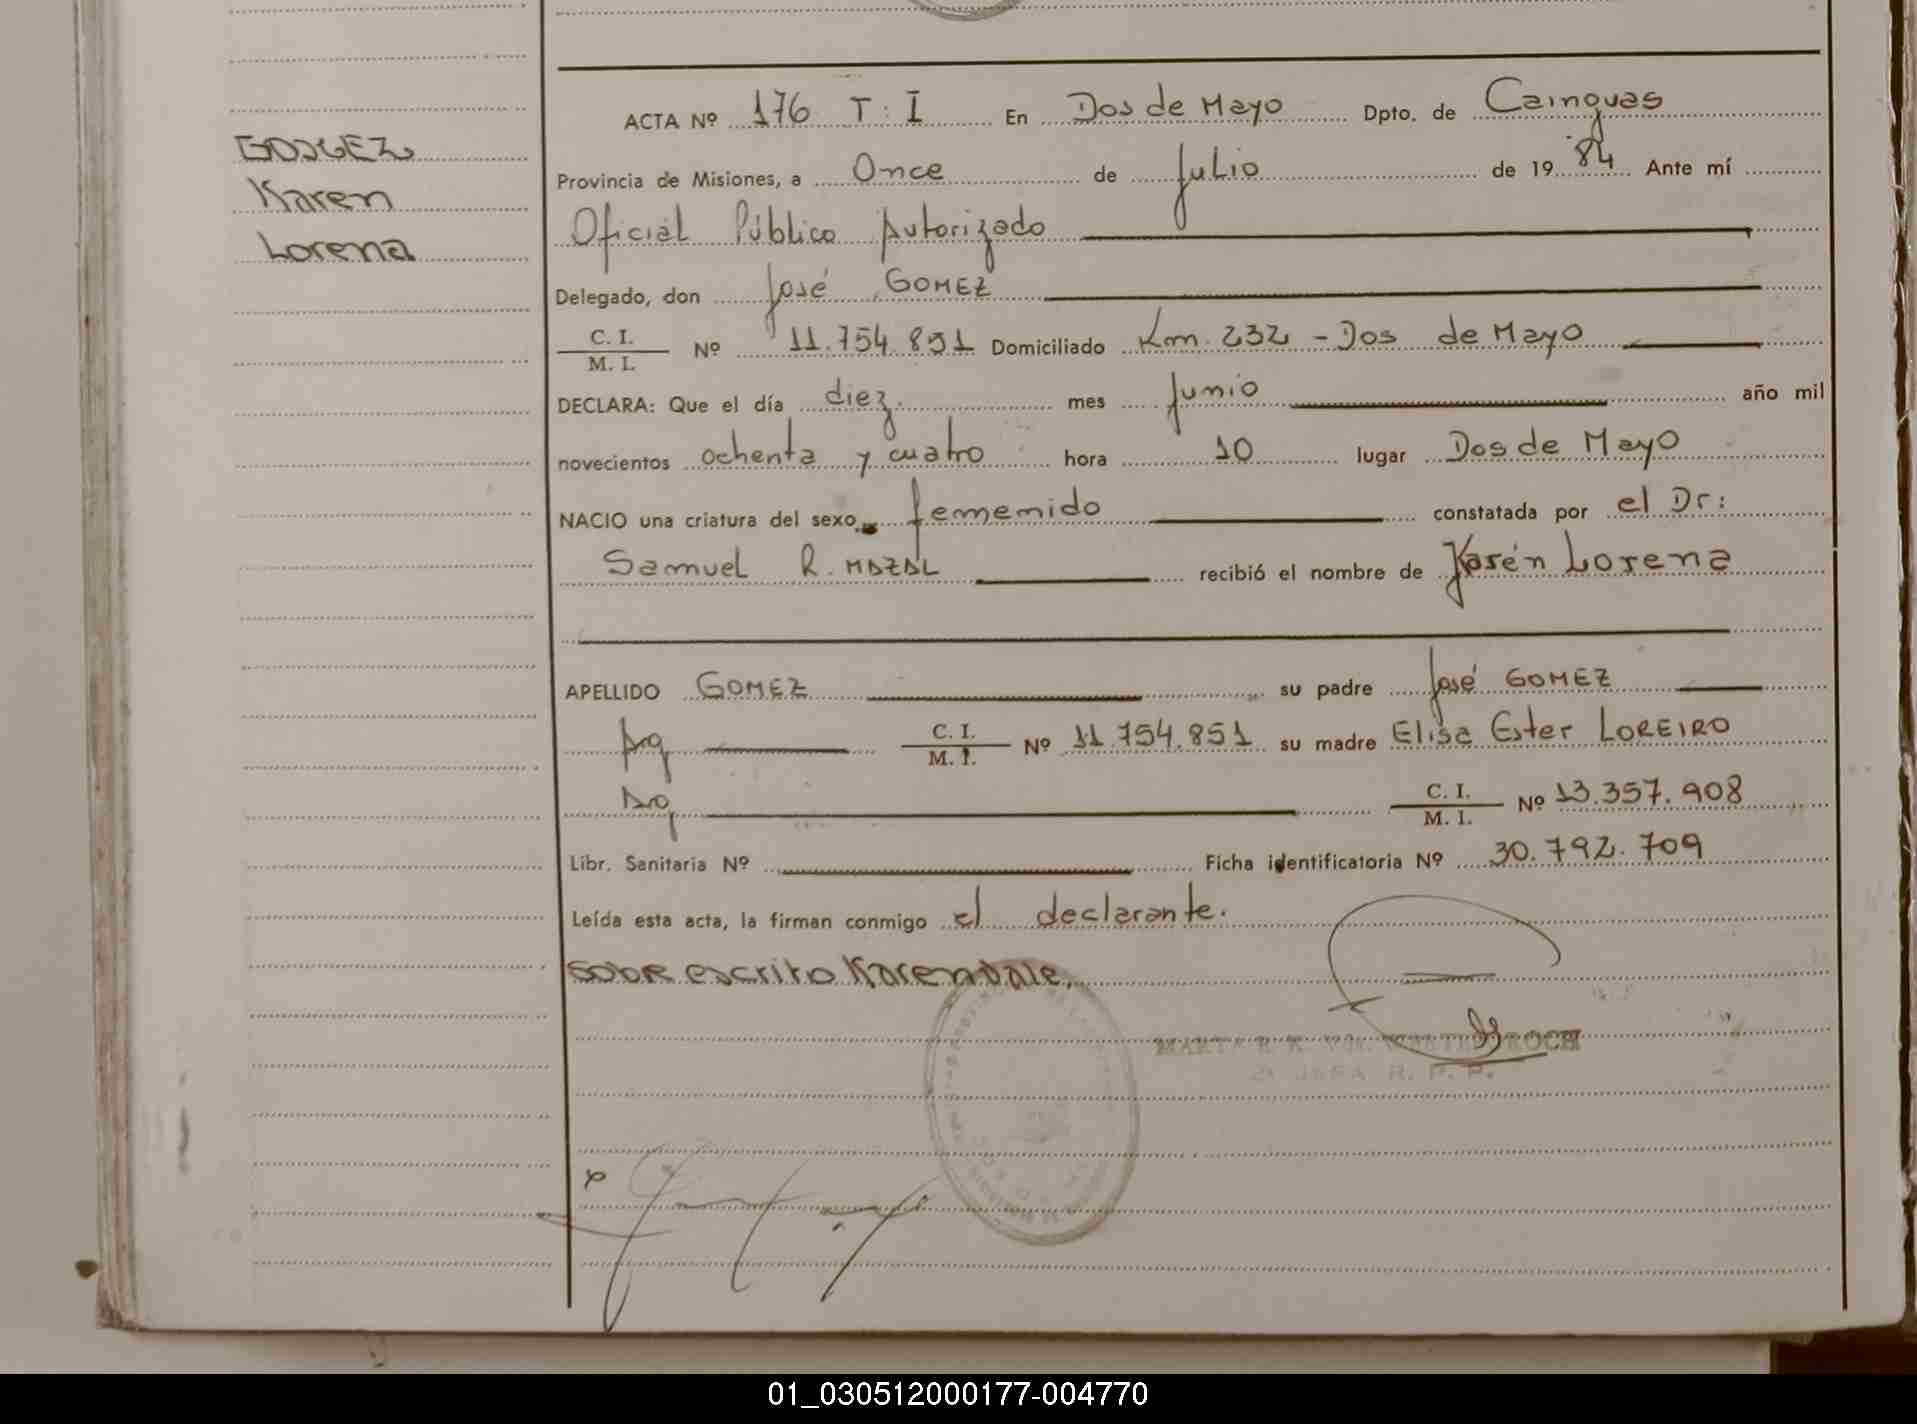 GOMEZ
Karen
Lorena
ACTA Nº 176 T: I En Dos de Mayo Dpto. de Cainguas
Provincia de Misiones, a Once de Julio de 19 84 Ante mí
Oficial Público Autorizado
Delegado, don José GOMEZ
C. I.
M. I. Nº 11.754.851 Domiciliado Km. 232 - Dos de Mayo
DECLARA: Que el día diez. mes Junio año mil
novecientos ochenta y cuatro hora 10 lugar Dos de Mayo
NACIO una criatura del sexo femenido constatada por el Dr:
Samuel R. MAZAL recibió el nombre de Karén Lorena
APELLIDO GOMEZ su padre José GOMEZ
Arg C. I.
M. I. Nº 11.754.851 su madre Elisa Ester LOREIRO
Arg C. I.
M. I. Nº 13.357.908
Libr. Sanitaria Nº Ficha identificatoria Nº 30.792.709
Leída esta acta, la firman conmigo el declarante.
Sobre escrito Karen Vale.
JEFA R. P. P.
01_030512000177-004770